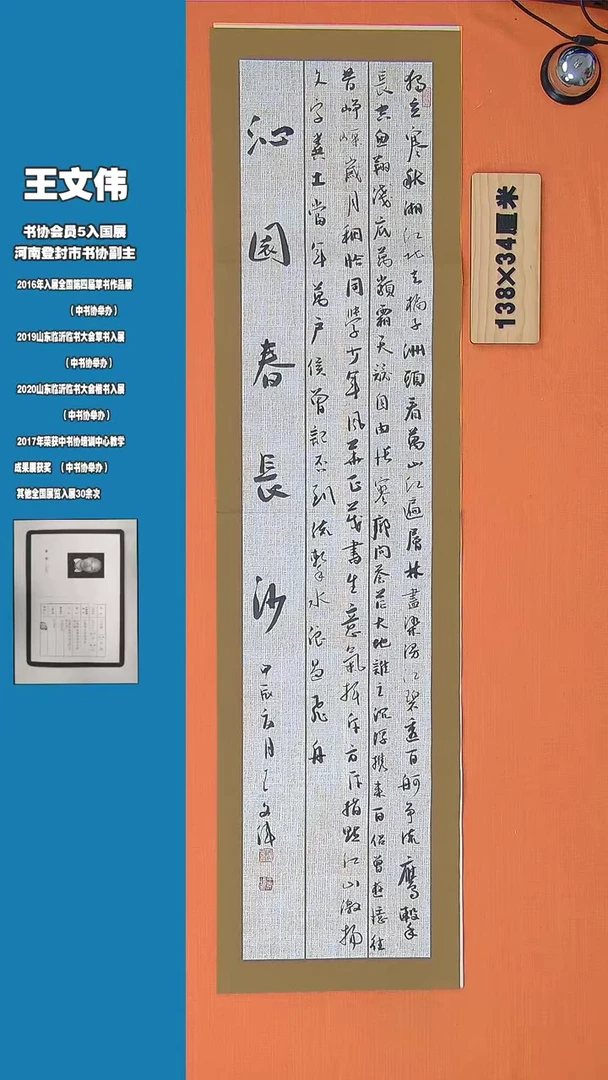 王文伟
书协会员5入国展
河南登封市书协副主
2016年入展全国第四届草书作品展
（中书协举办）
2019山东临沂临书大会草书入展
（中书协举办）
2020山东临沂临书大会楷书入展
（中书协举办）
2017年荣获中书协培训中心教学
成果展获奖 （中书协举办）
其他全国展览入展30余次
138×34厘米
独立寒秋湘江北去橘子洲頭看萬山红遍層林盡染漫江碧透百舸争流鹰擊
長空鱼翔淺底萬類霜天競自由怅寥廓问苍茫大地誰主沉浮携来百侣曾遊憶往
昔崢嶸歲月稠恰同學少年風華正茂書生意氣挥斥方遒指點江山激揚
文字糞土當年萬户侯曾記否到流擊水浪遏飛舟
沁園春長沙
甲辰夏月王文偉